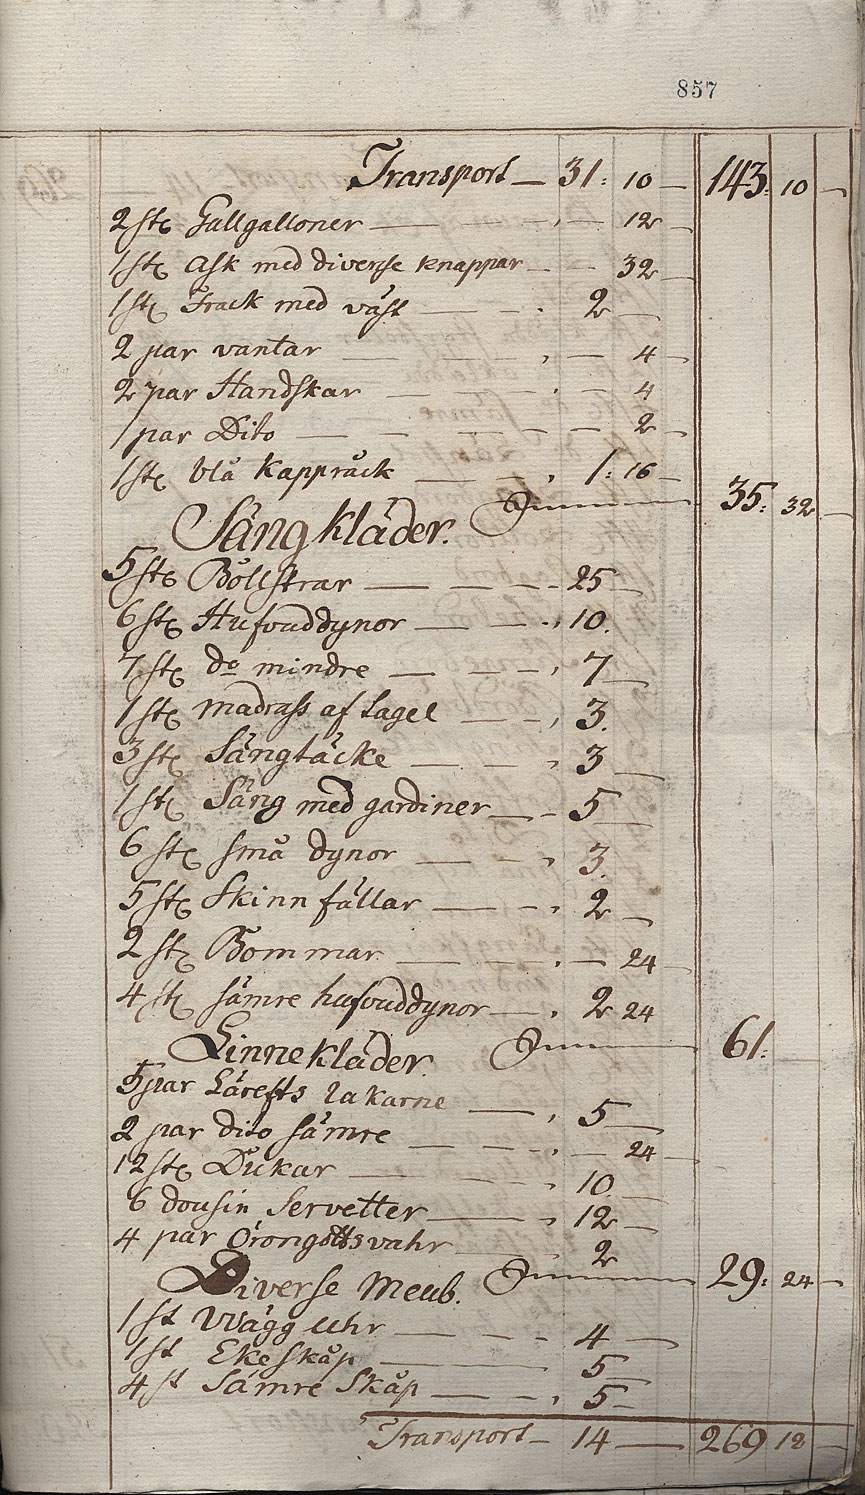 857
Transport — 31: 10 — 143: 10 —
2 st Gallgalloner — — — 12 —
1 st Ask med diverse knappar — — 32 —
1 st Frack med väst — — 2 —
2 par vantar — — — 4 —
2 par Handskar — — — 4
1 par Dito — — — 2 —
1 st blå Kappråck — — 1: 16 —
Summa 35: 32 —
Sängkläder.
5 st Bollstrar — — 25 —
6 st Hufvuddynor — — 10.
7 st do mindre — — 7 —
1 st madrass af tagel — — 3.
3 st Sängtäcke — — 3 —
1 st Säng med gardiner — — 5 —
6 st små dynor — — 3.
5 st Skinn fällar — — 2 —
2 st Bommar — — — 24 —
4 st sämre hufvuddynor — 2 24
Summa 61: —
Linnekläder.
5 par Lärefts lakarne — 5 —
2 par dito sämre — — — 24 —
12 st Dukar — — 10 —
6 dousin Servetter — — 12 —
4 par Örongottsvahr — 2
Summa 29: 24 —
Diverse Meub.
1 st Wägg Uhr — — 4 —
1 st Eke skåp — 5 —
4 st Sämre Skåp — — 5 —
Transport — 14 — 269 12 —